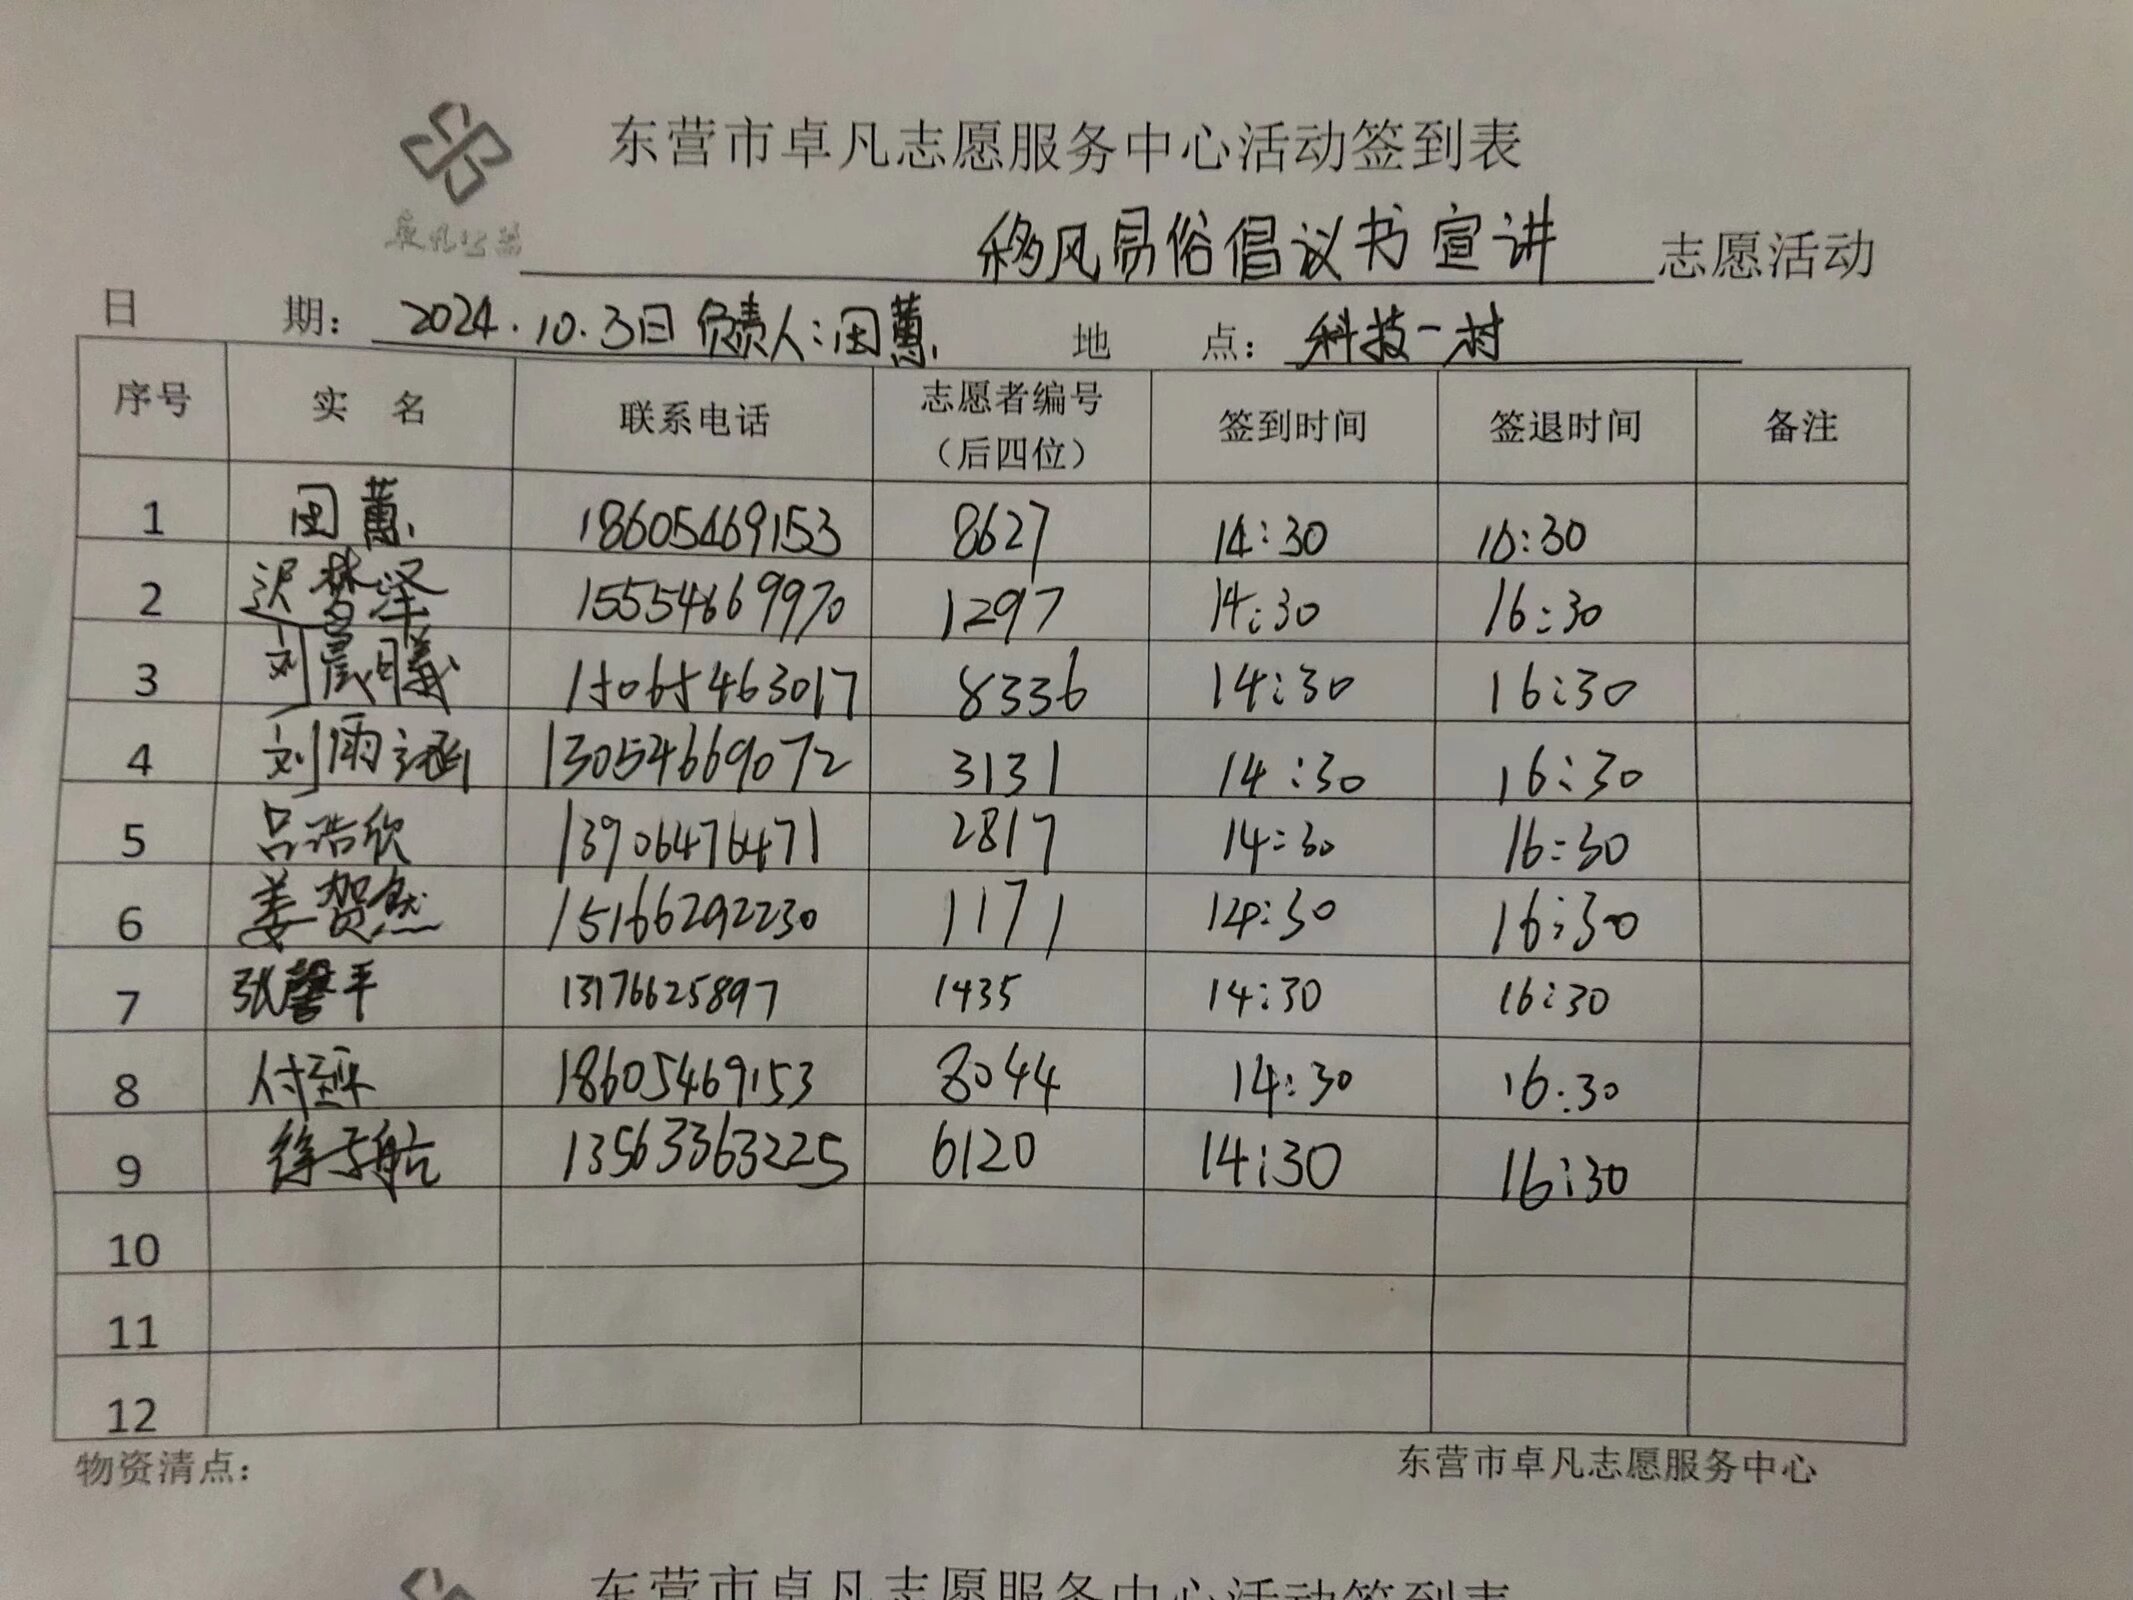 东营市卓凡志愿服务中心活动签到表
移风易俗倡议书宣讲 志愿活动
日 期： 2024.10.3日 负责人：田蕙 地 点： 科技一村
序号 实 名 联系电话 志愿者编号（后四位） 签到时间 签退时间 备注
1 田蕙 18605469153 8627 14:30 16:30
2 迟梦泽 15554669970 1297 14:30 16:30
3 刘晨曦 15065463017 8336 14:30 16:30
4 刘雨涵 13054669072 3131 14:30 16:30
5 吕浩欣 13906476471 2817 14:30 16:30
6 姜贺然 15166292230 1171 14:30 16:30
7 张馨平 13176625897 1435 14:30 16:30
8 付 18605469153 8044 14:30 16:30
9 徐子航 13563363225 6120 14:30 16:30
10
11
12
物资清点： 东营市卓凡志愿服务中心
东营市卓凡志愿服务中心活动签到表